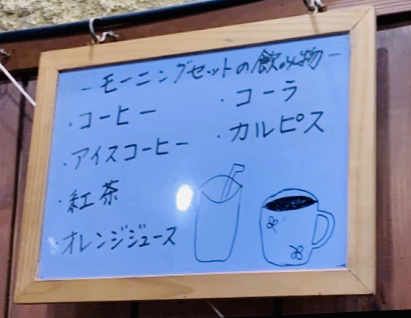 -モーニングセットの飲み物-
・コーヒー
・アイスコーヒー
・紅茶
・オレンジジュース
・コーラ
・カルピス